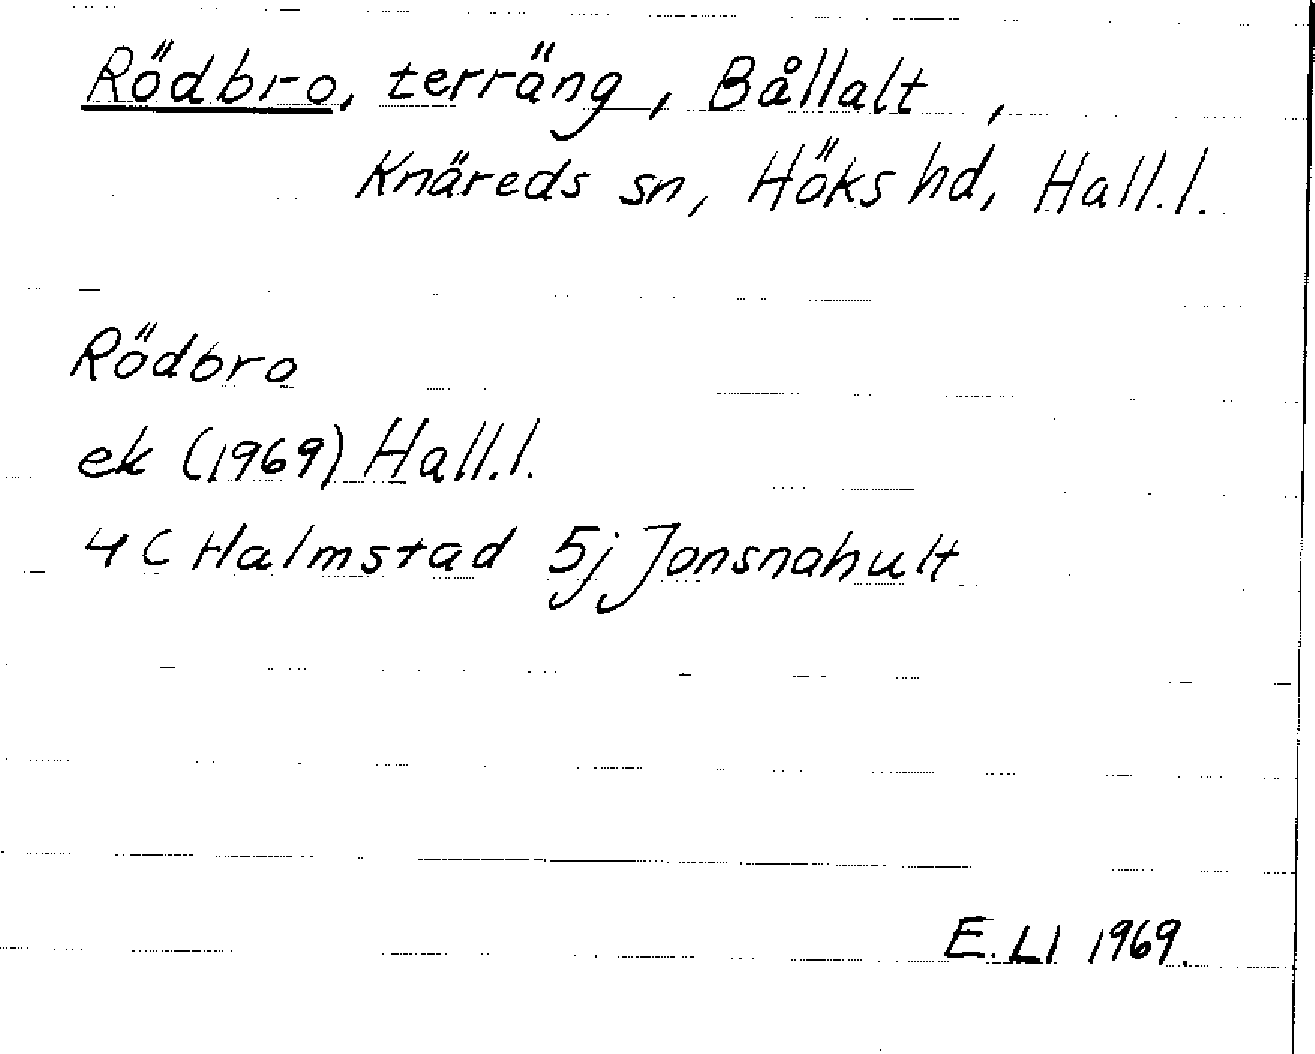 Rödbro, terräng, Bållalt,
Knäreds sn, Höks hd, Hall.l.
Rödbro
ek (1969) Hall.l.
4C Halmstad 5j Jonsnahult
E. LI 1969.